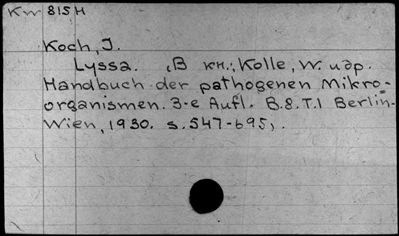 Kw 815H
Koch, J.
Lyssa. , В кн.; Kolle, W. и др.
Handbuch der pathogenen Mikro-
organismen. 3-e Aufl. B.8.T.1 Berlin-
Wien, 1930. s. 547-695, .